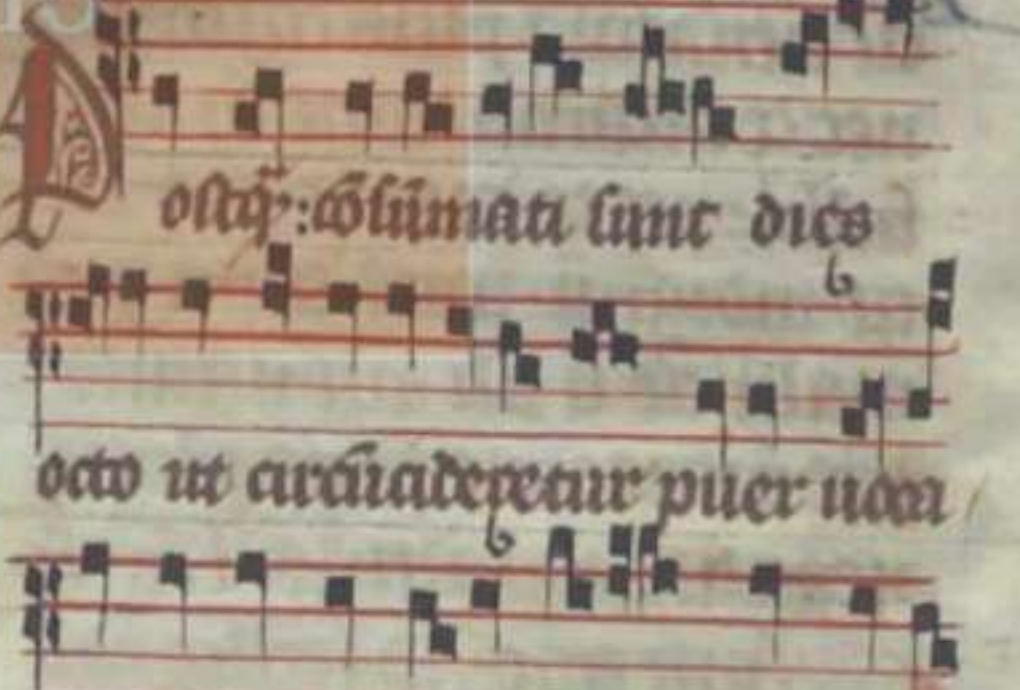 Postq̃:cõsũmati sunt dies
octo ut circũcideretur puer uoca